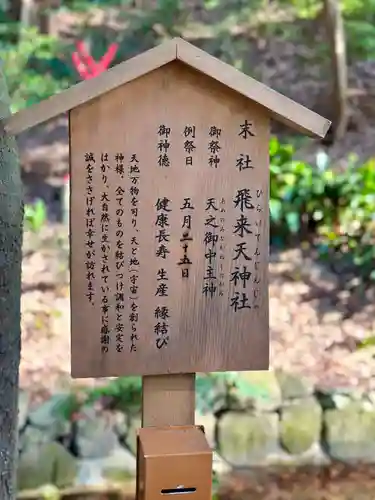 末社 飛来天神社
ひらいてんじんじゃ
御祭神 天之御中主神
あめのみなかぬしのかみ
例祭日 五月二十五日
御神徳 健康長寿 生産 縁結び
天地万物を司り、天と地(宇宙)を創られた
神様。全てのものを結びつけ調和と安定を
はかり、大自然に生かされている事に感謝の
誠をささげれば幸せが訪れます。